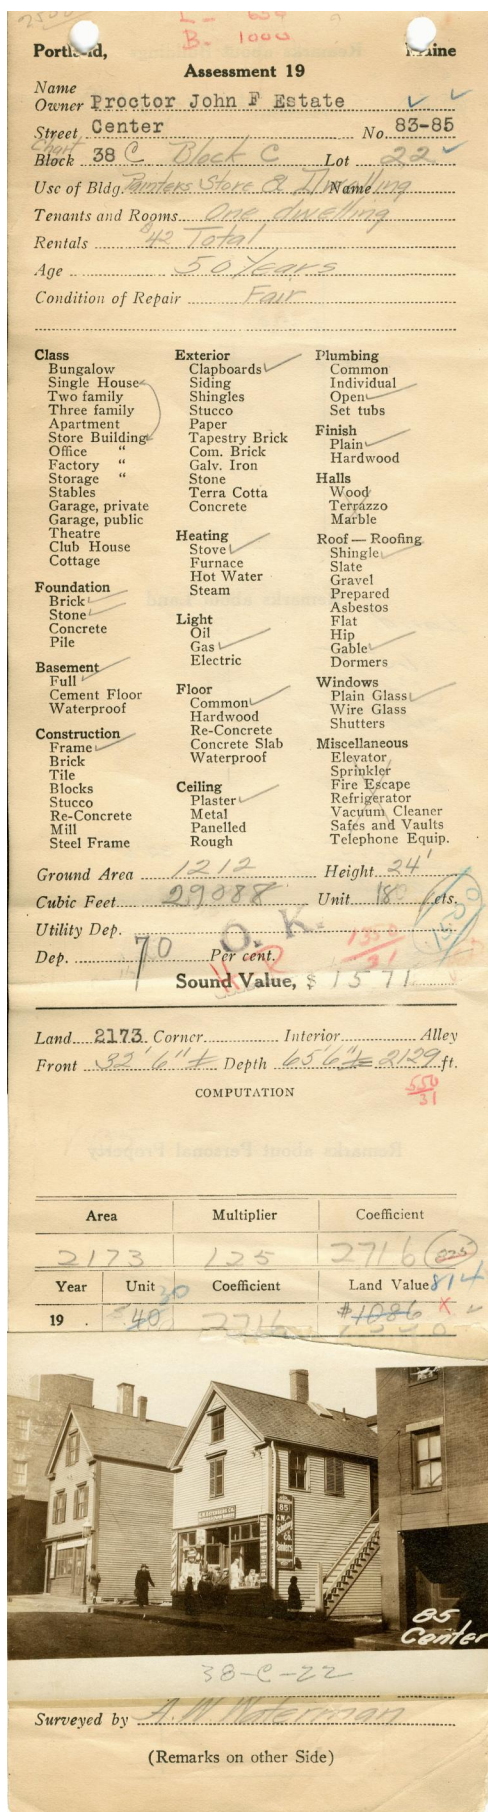 2500
L- 650
B. 1000
Portland, Maine
Assessment 19
Name
Owner Proctor John F Estate
Street Center No. 83-85
Chart
Block 38 C Block C Lot 22
Use of Bldg. Painters Store & Dwelling Name
Tenants and Rooms One dwelling
Rentals $42 Total
Age 50 Years
Condition of Repair Fair
Class
Bungalow
Single House
Two family
Three family
Apartment
Store Building
Office "
Factory "
Storage "
Stables
Garage, private
Garage, public
Theatre
Club House
Cottage
Foundation
Brick
Stone
Concrete
Pile
Basement
Full
Cement Floor
Waterproof
Construction
Frame
Brick
Tile
Blocks
Stucco
Re-Concrete
Mill
Steel Frame
Exterior
Clapboards
Siding
Shingles
Stucco
Paper
Tapestry Brick
Com. Brick
Galv. Iron
Stone
Terra Cotta
Concrete
Heating
Stove
Furnace
Hot Water
Steam
Light
Oil
Gas
Electric
Floor
Common
Hardwood
Re-Concrete
Concrete Slab
Waterproof
Ceiling
Plaster
Metal
Panelled
Rough
Plumbing
Common
Individual
Open
Set tubs
Finish
Plain
Hardwood
Halls
Wood
Terrazzo
Marble
Roof — Roofing
Shingle
Slate
Gravel
Prepared
Asbestos
Flat
Hip
Gable
Dormers
Windows
Plain Glass
Wire Glass
Shutters
Miscellaneous
Elevator
Sprinkler
Fire Escape
Refrigerator
Vacuum Cleaner
Safes and Vaults
Telephone Equip.
Ground Area 1212 Height 24'
Cubic Feet 29088 Unit 18 cts.
Utility Dep.
O. K.
1350
31
Dep. 70 Per cent.
Sound Value, $ 1571
Land 2173 Corner Interior Alley
Front 32' 6" ± Depth 65'6" ± = 2129 ft.
550
31
COMPUTATION
Area Multiplier Coefficient
2173 125 2716 825
Year Unit 30 Coefficient Land Value 814
19 $40 2716 $1086 X
85
85
Center
38-C-22
Surveyed by A. W. Waterman
(Remarks on other Side)